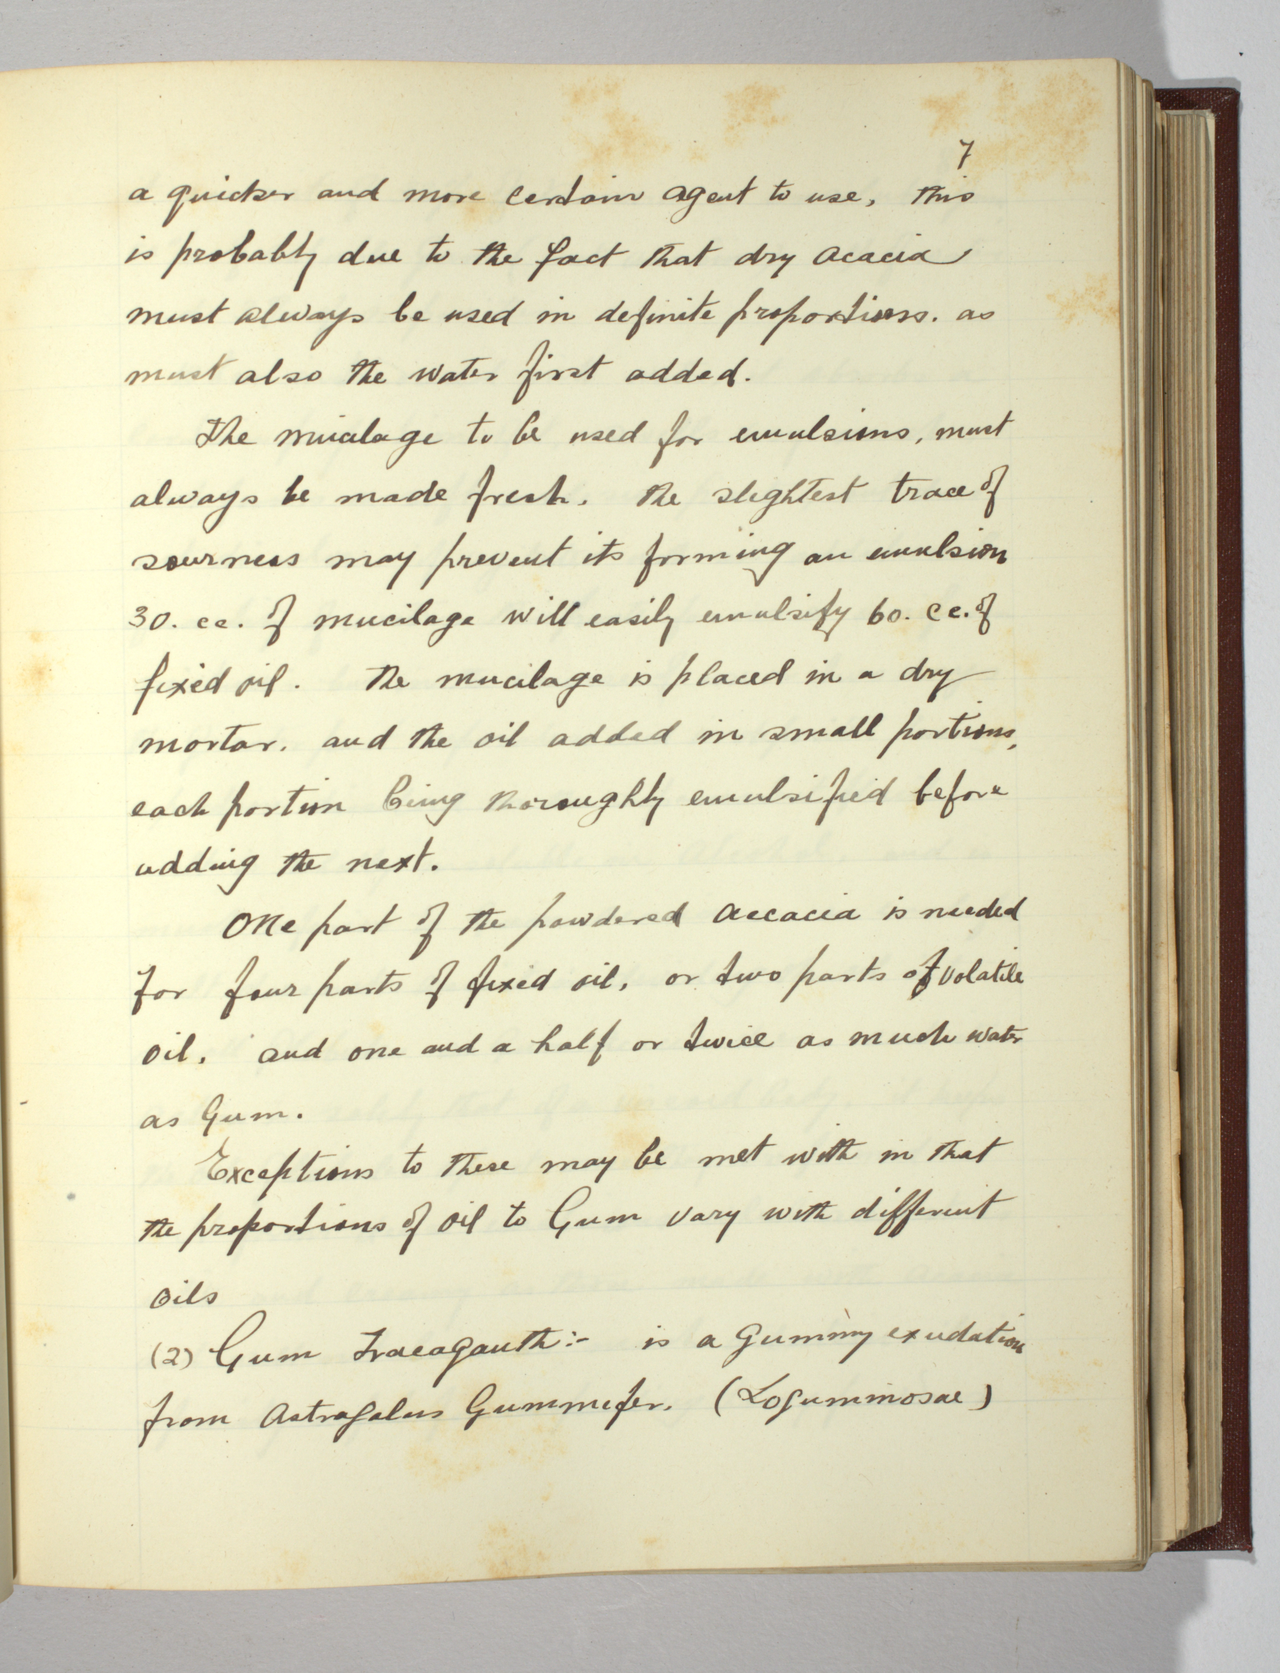 7
a quicker and more certain agent to use, this
is probably due to the fact that dry acacia
must always be used in definite proportions. as
must also the water first added.
The mucilage to be used for emulsions, must
always be made fresh. The slightest trace of
sourness may prevent its forming an emulsion
30. cc. of mucilage will easily emulsify 60. cc. of
fixed oil. The mucilage is placed in a dry
mortar. and the oil added in small portions,
each portion being thoroughly emulsified before
adding the next.
One part of the powdered accacia is needed
for four parts of fixed oil, or two parts of volatile
oil. and one and a half or twice as much water
as Gum.
Exceptions to these may be met with in that
the proportions of oil to Gum vary with different
oils
(2) Gum Tracaganth:- is a gummy exudation
from Astragalus Gummifer. (Loguminosae)